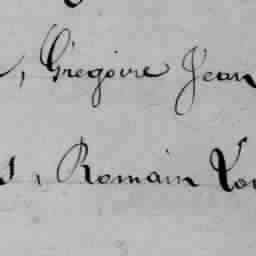 , Grégoire Jean
s, Romain Lou